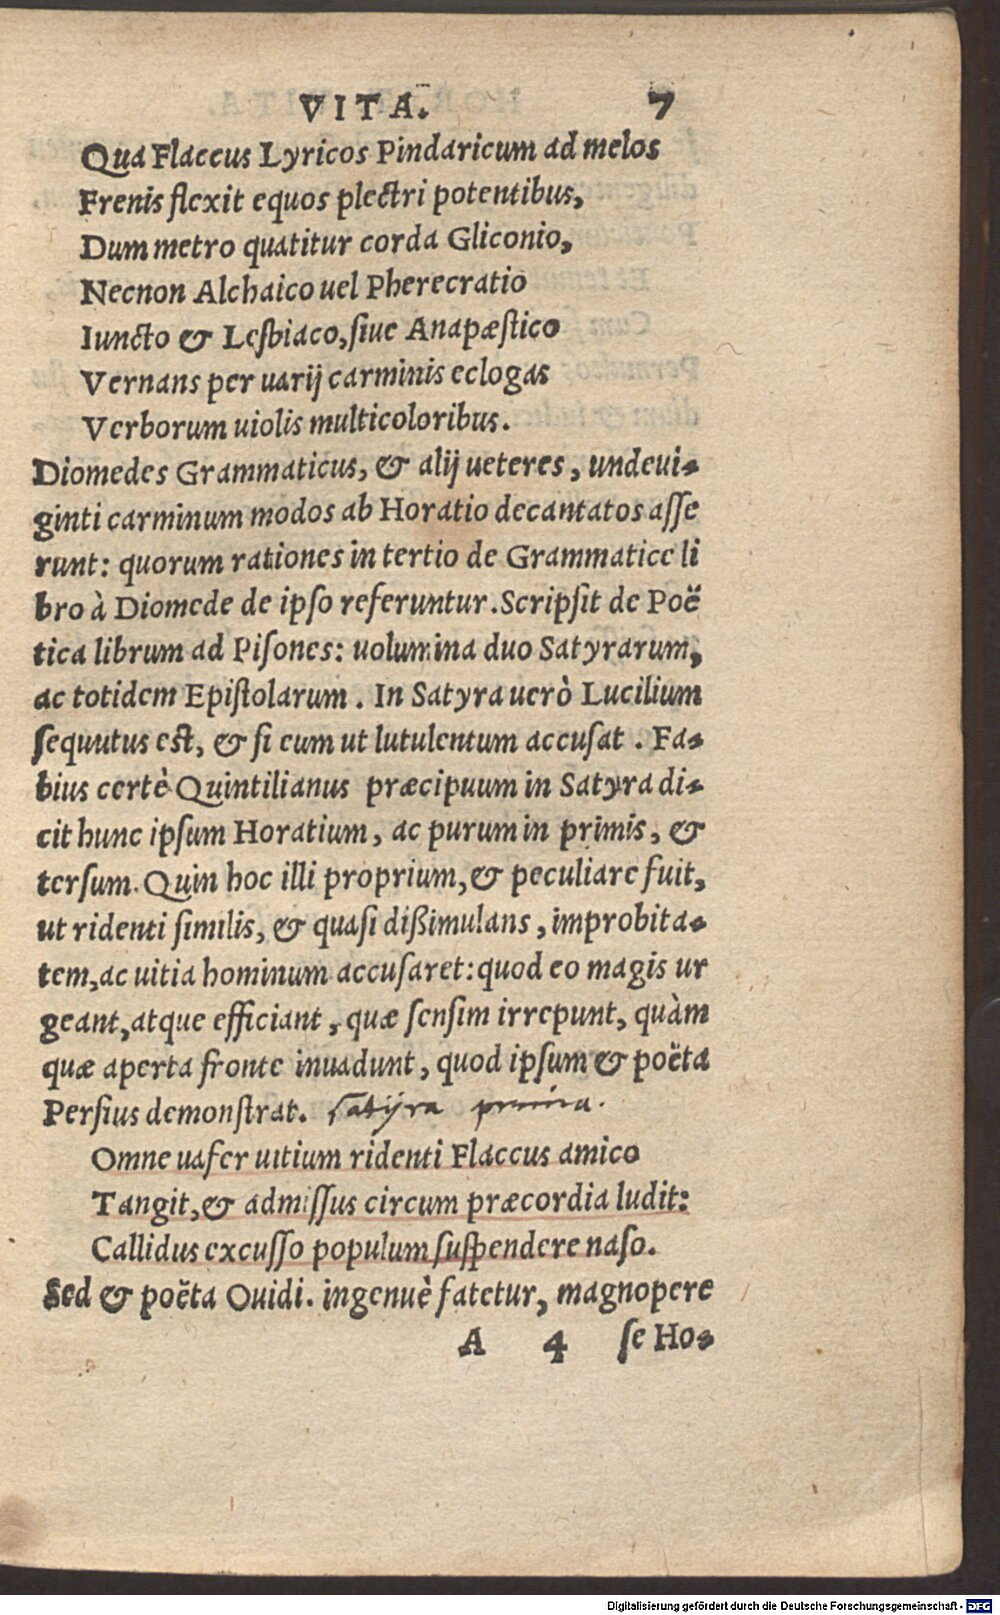 VITA. 7
Qua Flaccus Lyricos Pindaricum ad melos
Frenis flexit equos plectri potentibus,
Dum metro quatitur corda Gliconio,
Necnon Alchaico uel Pherecratio
Iuncto & Lesbiaco, siue Anapæstico
Vernans per uarij carminis eclogas
Verborum uiolis multicoloribus.
Diomedes Grammaticus, & alij ueteres, undeui-
ginti carminum modos ab Horatio decantatos asse
runt: quorum rationes in tertio de Grammatice li
bro à Diomede de ipso referuntur. Scripsit de Poë
tica librum ad Pisones: uolumina duo Satyrarum,
ac totidem Epistolarum. In Satyra uerò Lucilium
sequutus est, & si eum ut lutulentum accusat. Fa-
bius certè Quintilianus præcipuum in Satyra di-
cit hunc ipsum Horatium, ac purum in primis, &
tersum. Quin hoc illi proprium, & peculiare fuit,
ut ridenti similis, & quasi dißimulans, improbita-
tem, ac uitia hominum accusaret: quod eo magis ur
geant, atque efficiant, quæ sensim irrepunt, quàm
quæ aperta fronte inuadunt, quod ipsum & poëta
Persius demonstrat. satÿra prima.
Omne uafer uitium ridenti Flaccus amico
Tangit, & admissus circum præcordia ludit:
Callidus excusso populum suspendere naso.
Sed & poëta Ouidi. ingenuè fatetur, magnopere
A 4 se Ho-
Digitalisierung gefördert durch die Deutsche Forschungsgemeinschaft - DFG